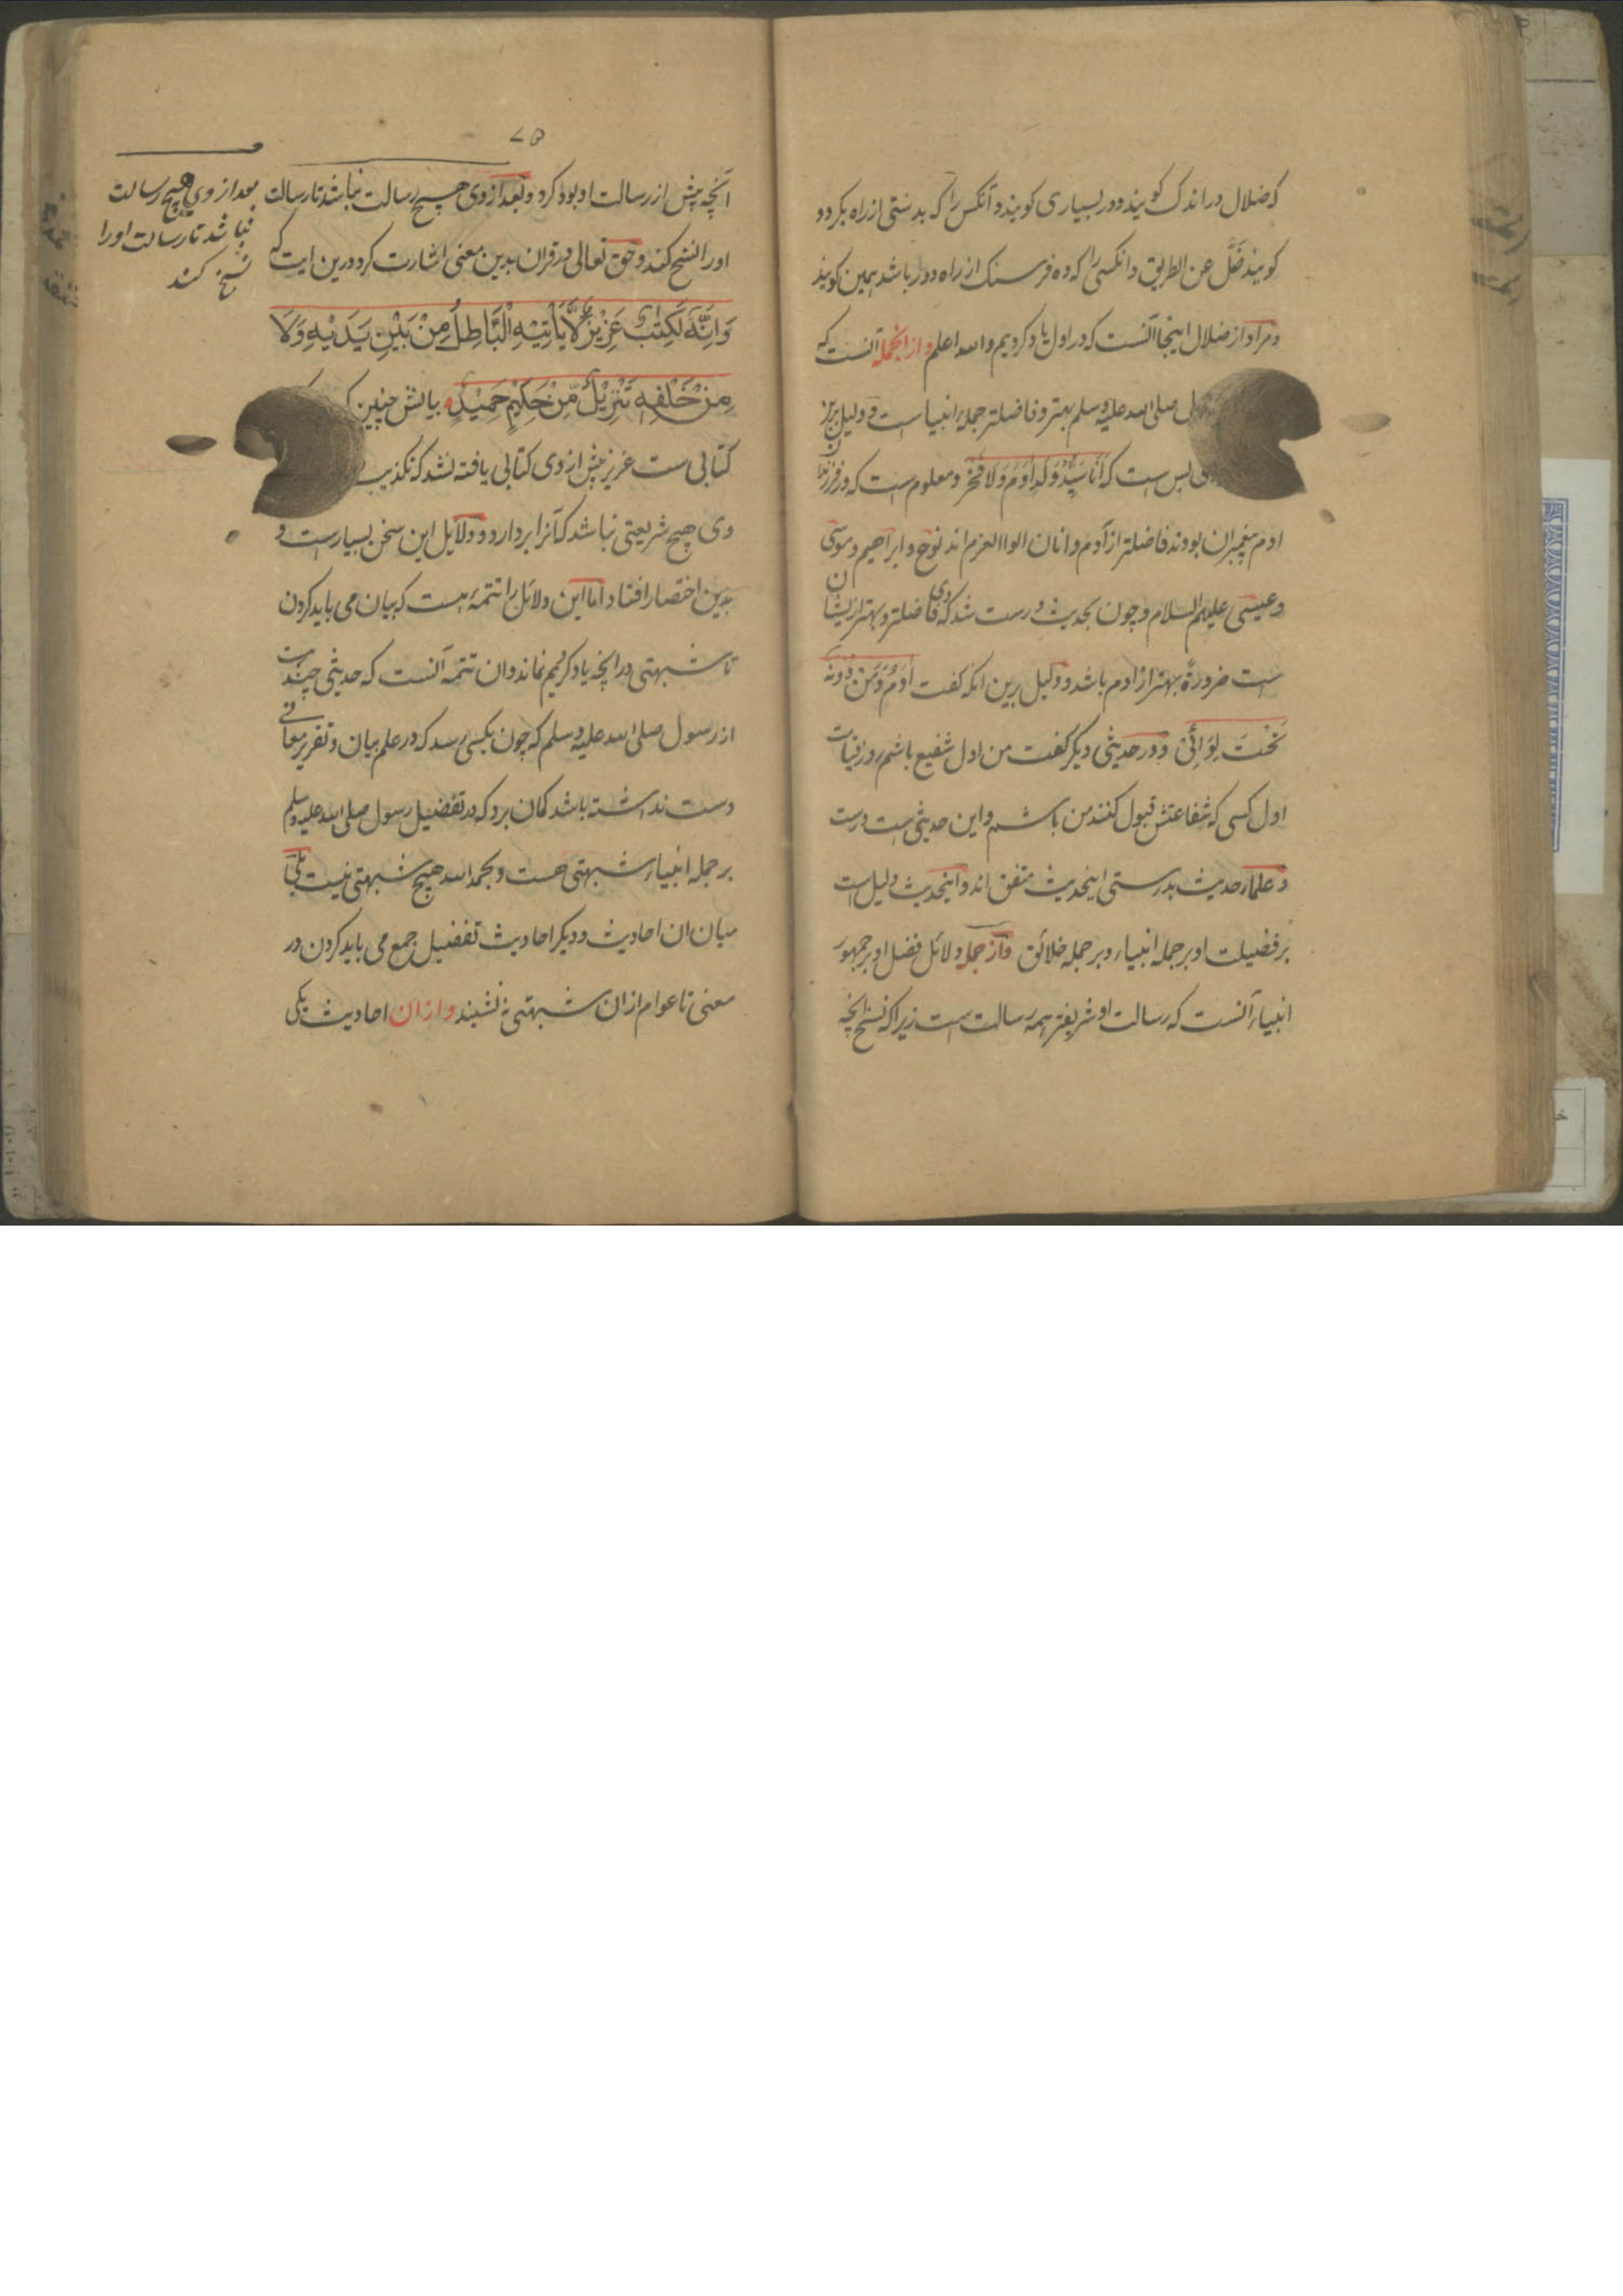 که ضلال در اندک کویند و در بسیاری کویند و آنکس را که بدستی از راه بکردد
کویند ضَلَّ عن الطریق و انکسی را که ده فرسنک از راه دور باشد همین کویند
و مراد از ضلال اینجا آنست که در اول یاد کردیم والله اعلم وازانجمله آنست که
صلی الله علیه وسلم بهتر و فاضلتر جمله انبیا است و دلیل برین
بس است که اَنَا سَیِّدُ وَلَدِ اٰدَمَ وَلَا فَخْرَ و معلوم است که در فرزندان
ادم پیغمبران بودند فاضلتر از آدم و انان الوا العزم اند نوح و ابراهیم و موسی
و عیسی علیهم السلام و چون بحدیث درست شد که وی فاضلتر و بهتر ازیشان
است ضرورةً بهتر از ادم باشد و دلیل برین انکه کفت اٰدَمُ وَمَنْ دُوْنَهٗ
تَحْتَ لِوَائِیْ و در حدیثی دیکر کفت من اول شفیع باشم روز قیامت
اول کسی که شفاعتش قبول کنند من باشم و این حدیثی است درست
و علماء حدیث بدرستی اینحدیث متفق اند و اینحدیث دلیل است
بر فضیلت او بر جمله انبیاء و بر جمله خلائق وازجمله دلائل فضل او بر جمهور
انبیاء آنست که رسالت او شریفتر همه رسالت است زیرا که نسخ انچه
۷۵
آنچه پیش از رسالت او بود کرد و بعد از وی هیچ رسالت نباشد تا رسالت
او را نسخ کند و حق تعالی در قران بدین معنی اشارت کرد درین ایت که
وَاِنَّهٗ لَکِتٰبٌ عَزِیْزٌ لَّا یَاْتِیْهِ الْبَاطِلُ مِنْ بَیْنِ یَدَیْهِ وَلَا
مِنْ خَلْفِهٖ تَنْزِیْلٌ مِّنْ حَکِیْمٍ حَمِیْدٍ بیانش چنین
کتابی ست عزیز پیش از وی کتابی یافته نشد که تکذیب
وی هیچ شریعتی نباشد که آنرا بردارد و دلایل این سخن بسیارست و
بدین اختصار افتاد اما این دلائل را تتمهٔ هست که بیان می باید کردن
تا شبهتی در انچه یاد کردیم نماند و ان تتمه آنست که حدیثی چندست
از رسول صلی الله علیه وسلم که چون بکسی رسد که در علم بیان و تقریر معانی
دست نداشته باشد کمان برد که در تفضیل رسول صلی الله علیه وسلم
بر جمله انبیاء شبهتی هست و بحمد الله هیچ شبهتی نیست بلی
میان ان احادیث و دیکر احادیث تفضیل جمع می باید کردن در
معنی تا عوام ازان شبهتی نه نشیند و ازان احادیث یکی
بعد از وی هیچ رسالت
نباشد تا رسالت او را
نسخ کند